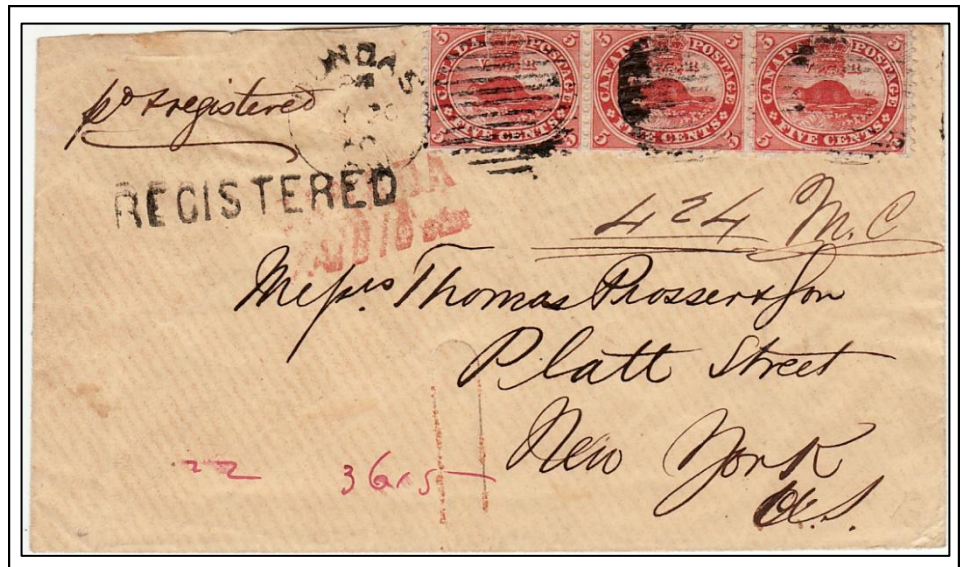 CANADA POSTAGE FIVE CENTS 5 5 5 5
CANADA POSTAGE FIVE CENTS 5 5 5 5
CANADA POSTAGE FIVE CENTS 5 5 5 5
pd & registered
REGISTERED
PAID 10
424 M.C
Messrs Thomas Prosser & Son
Platt Street
New York
U.S.
22 3605